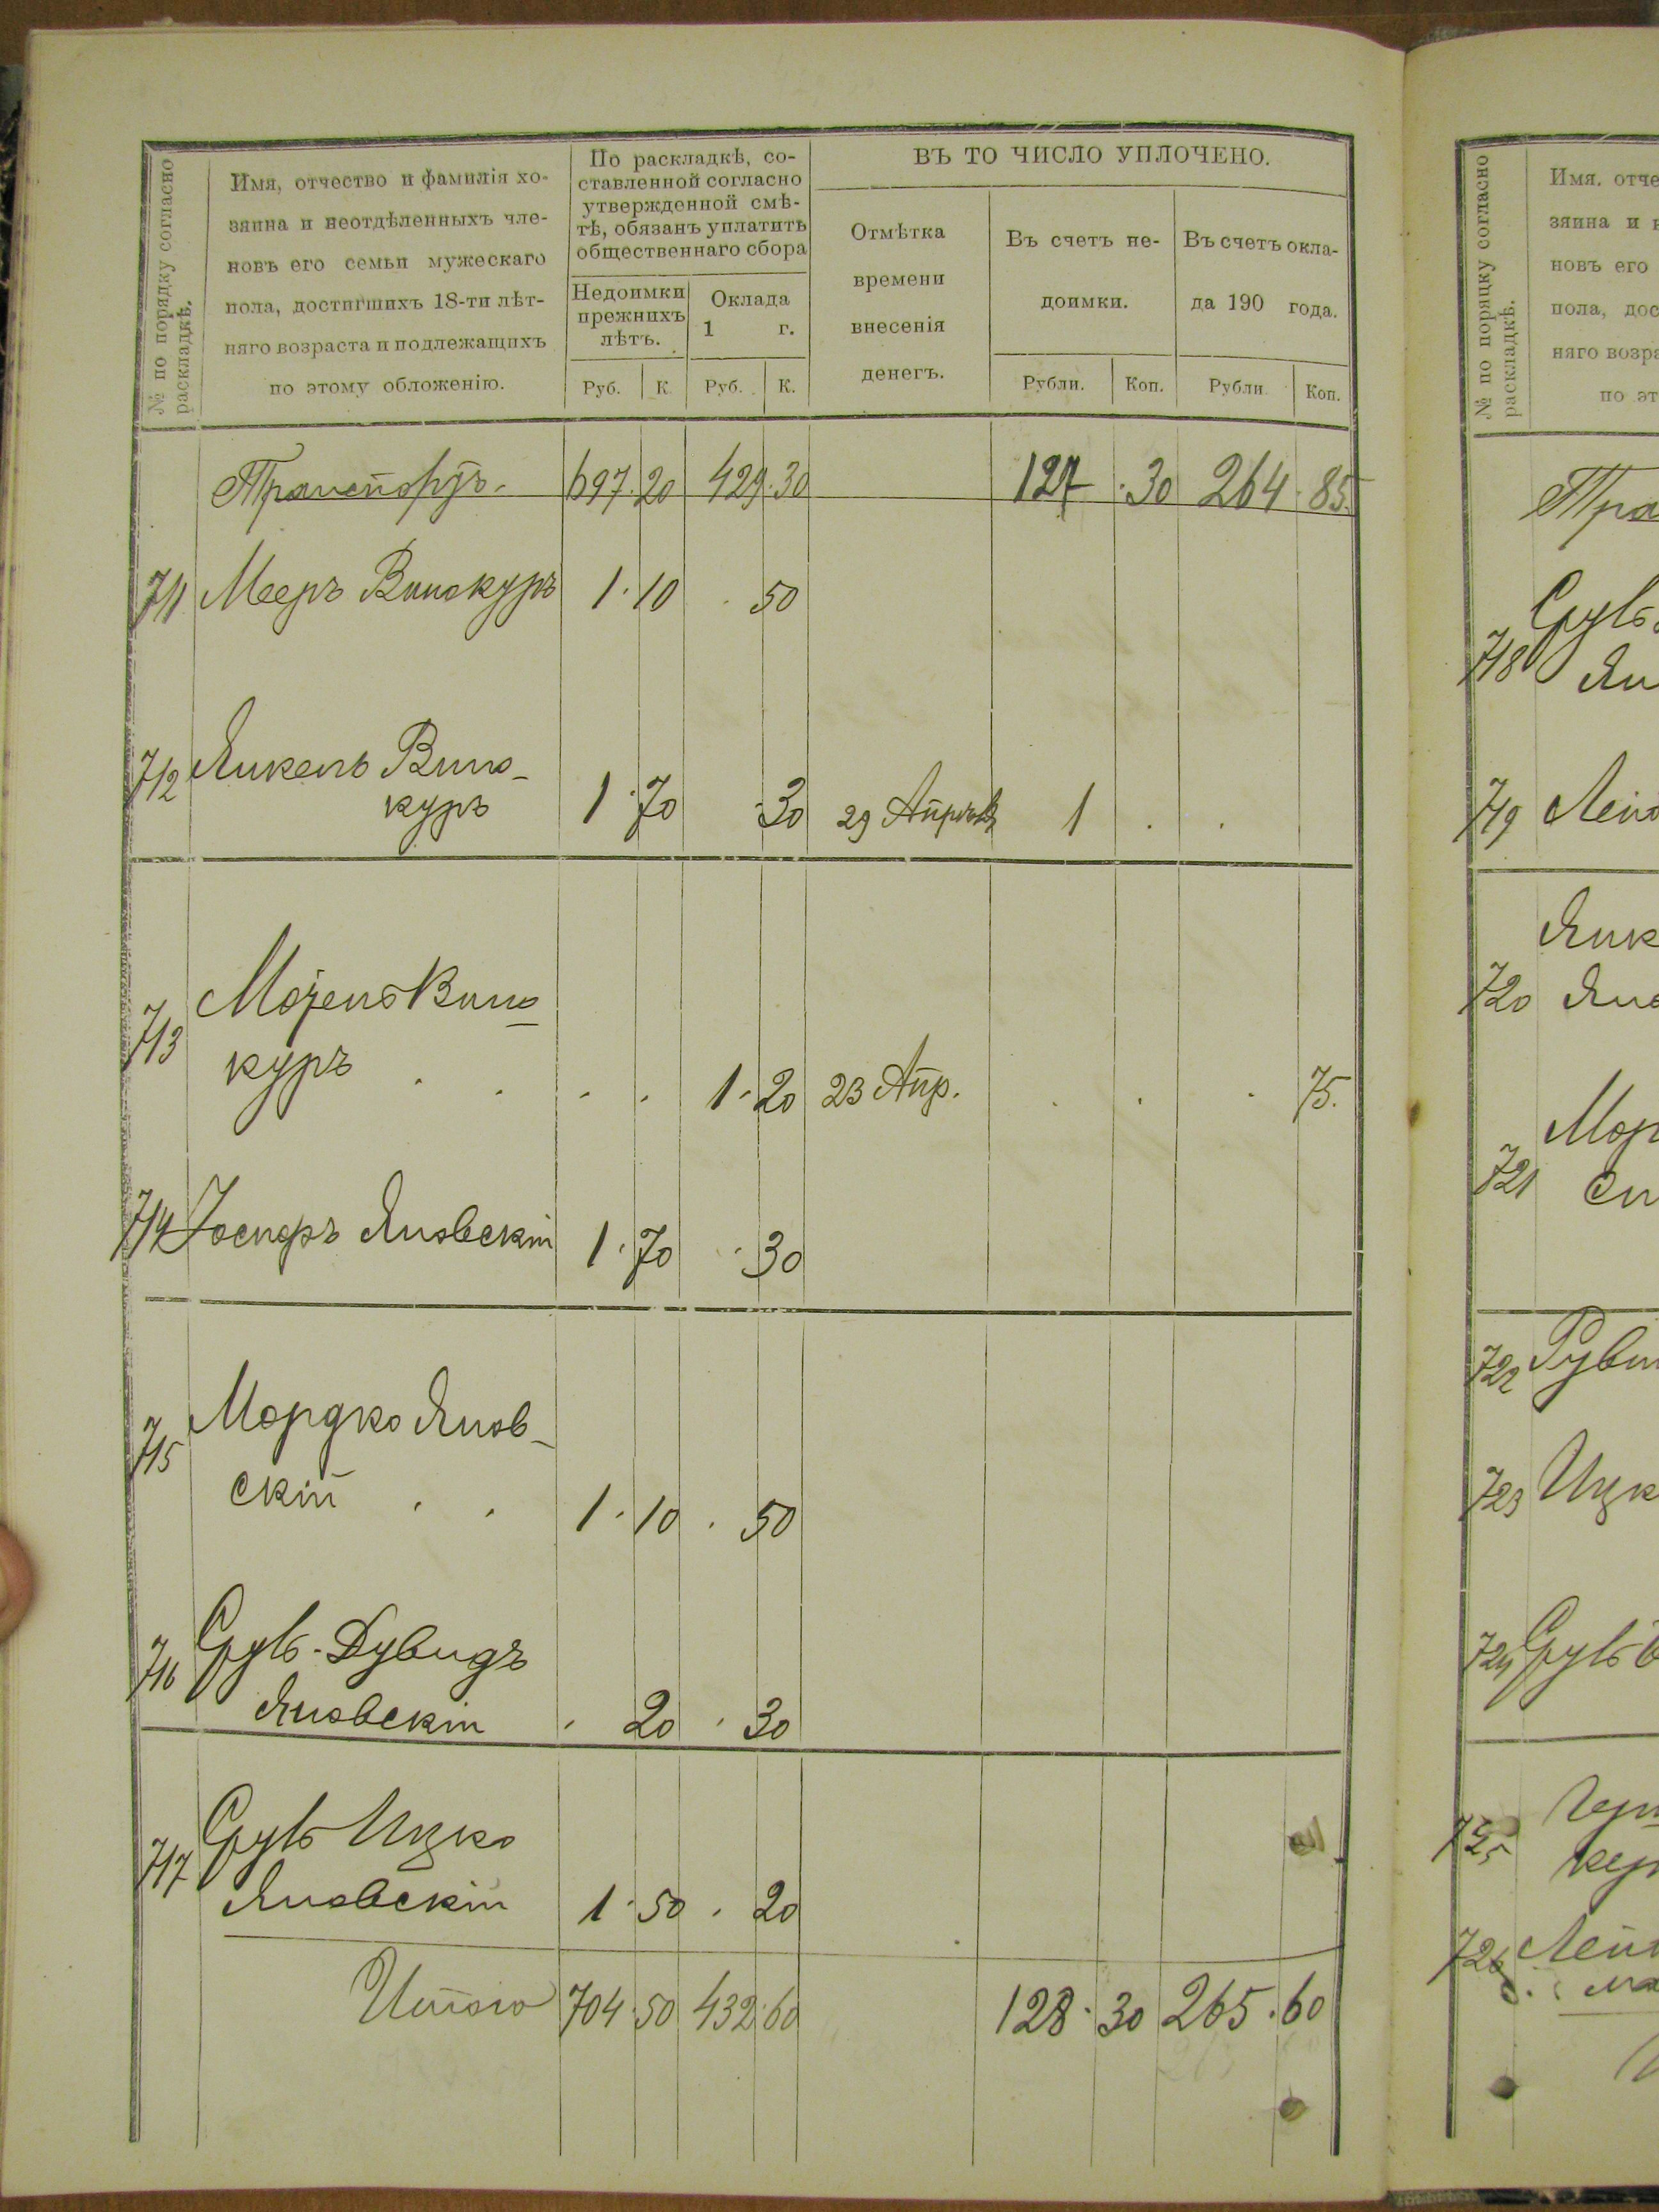 № по порядку согласно
раскладкѣ.
Имя, отчество и фамилія хо-
зяина и неотдѣленныхъ чле-
новъ его семьи мужескаго
пола, достигшихъ 18-ти лѣт-
няго возраста и подлежащихъ
по этому обложенію.
По раскладкѣ, со-
ставленной согласно
утвержденной смѣ-
тѣ, обязанъ уплатить
общественнаго сбора
Недоимки
прежнихъ
лѣтъ.
Оклада
1 г.
Руб. К. Руб. К.
ВЪ ТО ЧИСЛО УПЛОЧЕНО.
Отмѣтка
времени
внесенія
денегъ.
Въ счетъ не-
доимки.
Въ счетъ окла-
да 190 года.
Рубли. Коп. Рубли. Коп.
Транспортъ. 697.20 429.30 127.30 264.85.
711 Мееръ Винокуръ 1.10 . 50
712 Янкель Вино-
куръ 1.70 30 29 1 . .
713 Вино
куръ . . . . 1.20 23 Апр. . . . 75.
714 Яновскій 1.70 . 30
715 Мордко Янов-
скій . . 1.10 . 50
716 Сруль-Дувидъ
Яновскій . 20 . 30
717 Сруль Ицко
Яновскій 1.50 . 20
Итого 704.50 432.60 128.30 265.60
№ по порядку согласно
раскладкѣ.
Имя, отче
зяина и н
новъ его
пола, дос
няго возра
по эт
Тра
Сруль
718 Ян
719 Лейб
Янк
720 Яно
Мор
721
722 Рувин
723 Ицк
724 Сруль
725
726